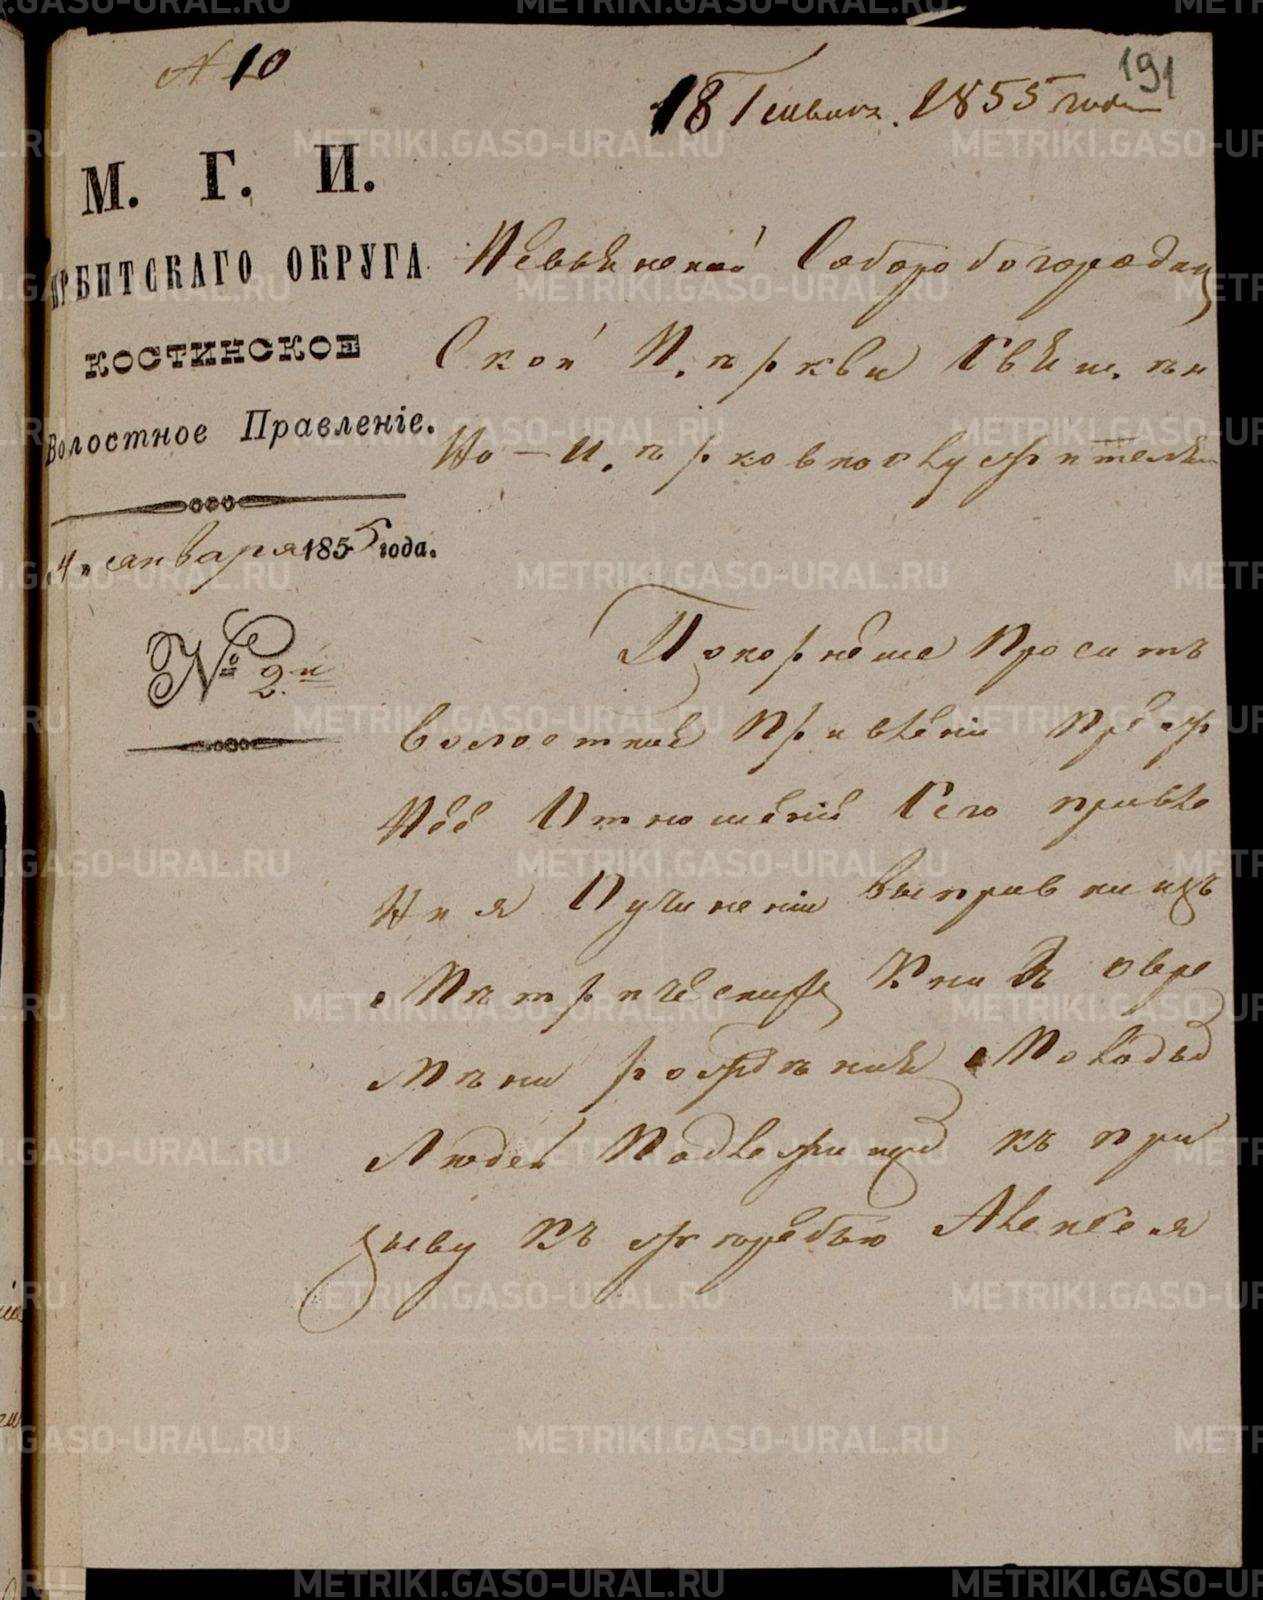 № 10
191
18 Генваря. 1855 года
М. Г. И.
ИРБИТСКАГО ОКРУГА
КОСТИНСКОЕ
Волостное Правленіе.
4 " января 1855 года.
№ 2й
Невьянской Соборо богородиц
Ской Церкви Свящ. ен
Но — ц. ерковнослужителям
Покорнейше Просит ъ
Волостное Правленіе
Отношеніе Сего правле
Ния Учинении выправки изъ
Метрическихъ Книгъ овре
Мени рождения Молодых
Людей Подлежащих къ при
зыву Къ жеребью Алексея
METRIKI.GASO-URAL.RU